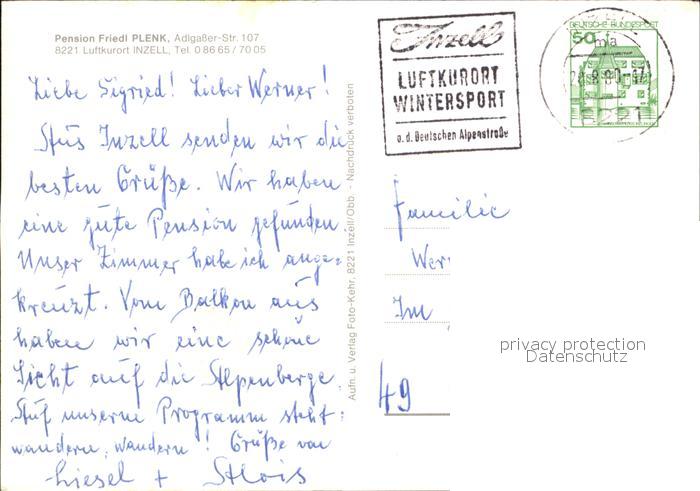 Pension Friedl PLENK, Adlgaßer-Str. 107
8221 Luftkurort INZELL, Tel. 0 86 65 / 70 05
Liebe Sigried! Lieber Werner!
Aus Inzell senden wir die
besten Grüße. Wir haben
eine gute Pension gefunden
Unser Zimmer habe ich ange-
kreuzt. Vom Balkon aus
haben wir eine schöne
Sicht auf die Alpenberge.
Auf unserm Programm steht:
wandern, wandern! Grüße von
Liesel + Alois
Aufn. u. Verlag Foto-Kehr, 8221 Inzell/Obb. - Nachdruck verboten
Inzell
LUFTKURORT
WINTERSPORT
a.d. Deutschen Alpenstraße
DEUTSCHE BUNDESPOST
50
8221
Familie
Wer
Im
49
privacy protection
Datenschutz